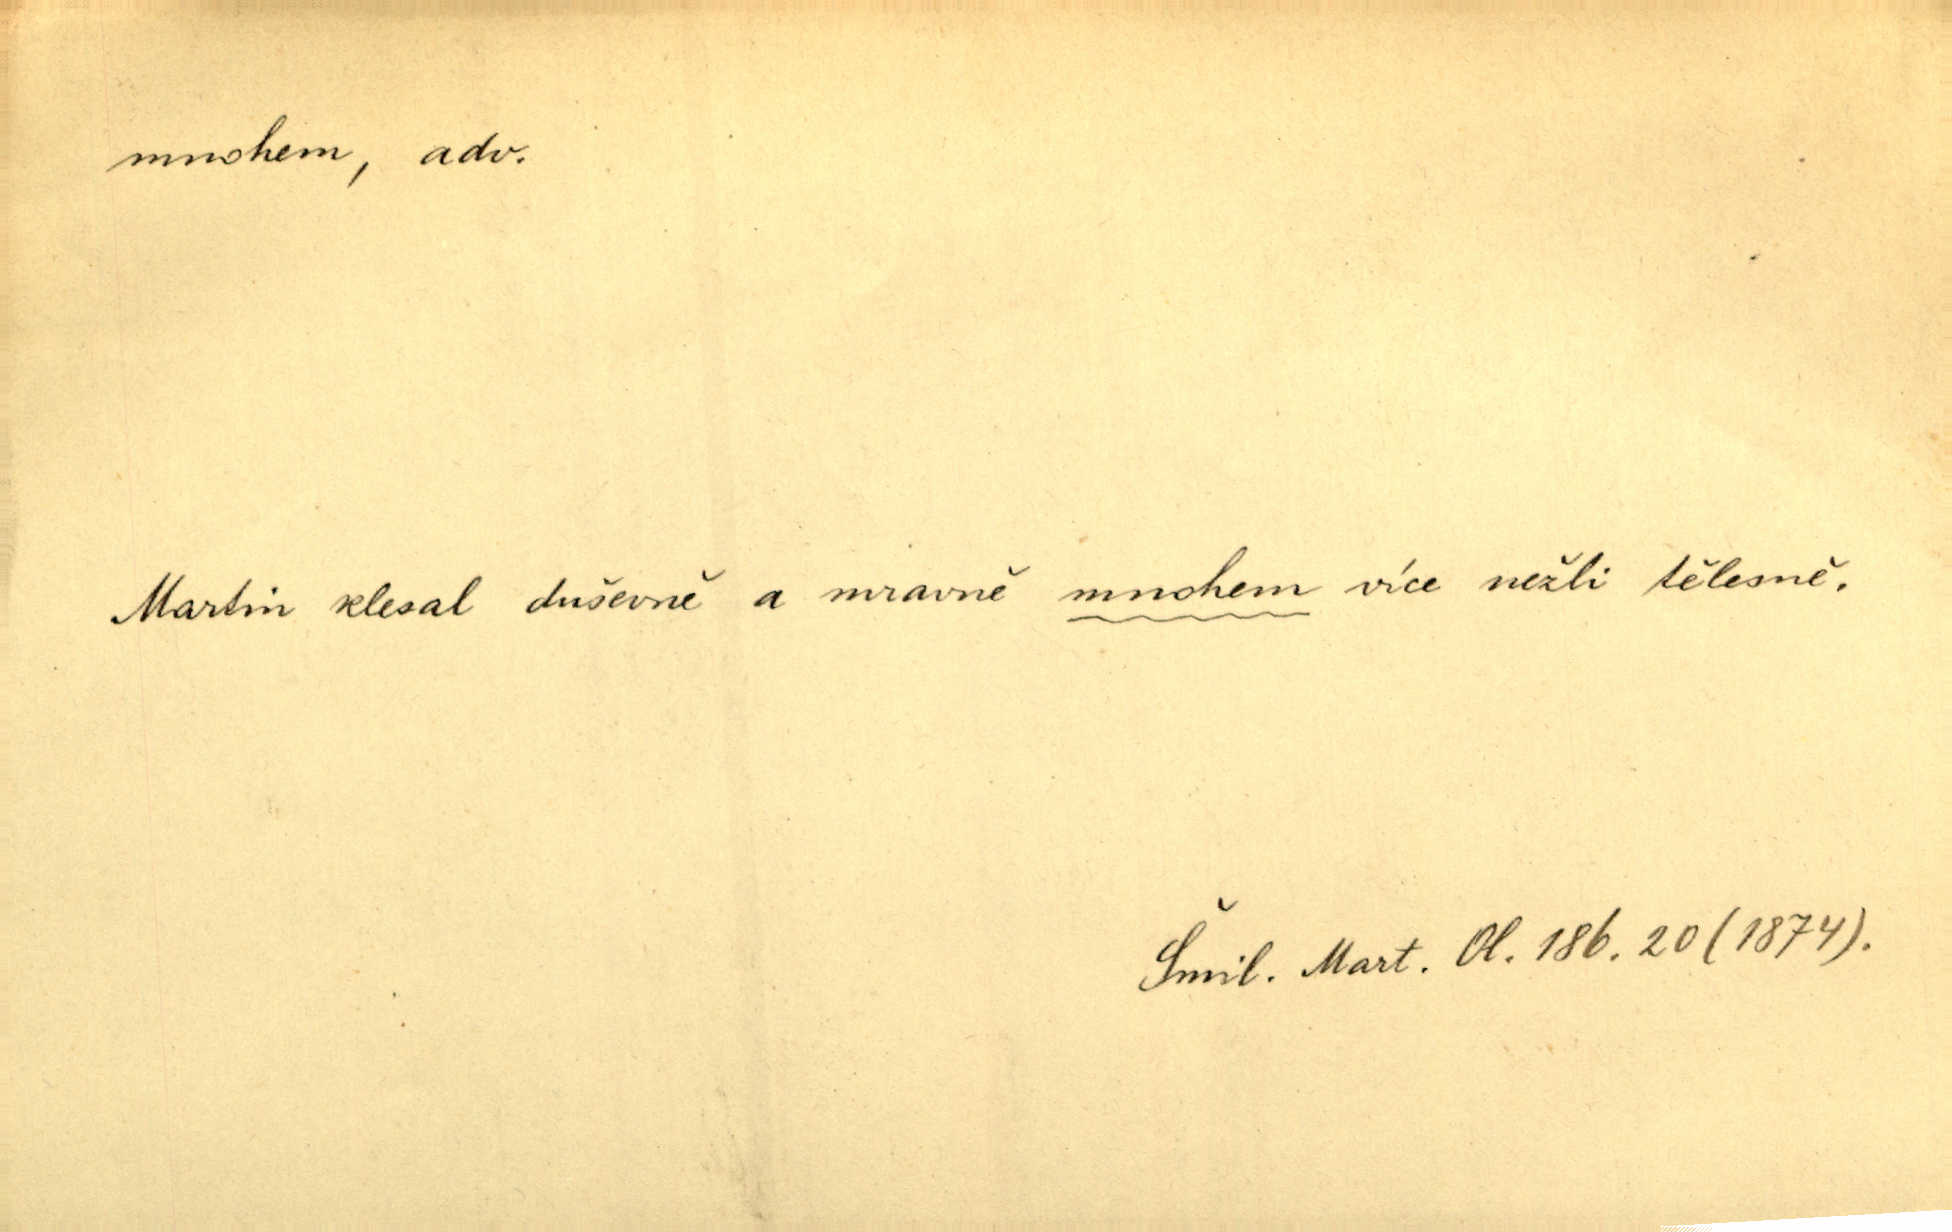 mnohem, adv.
Martin klesal duševně a mravně mnohem více nežli tělesně.
Šmil. Mart. Ol. 186. 20 (1874).